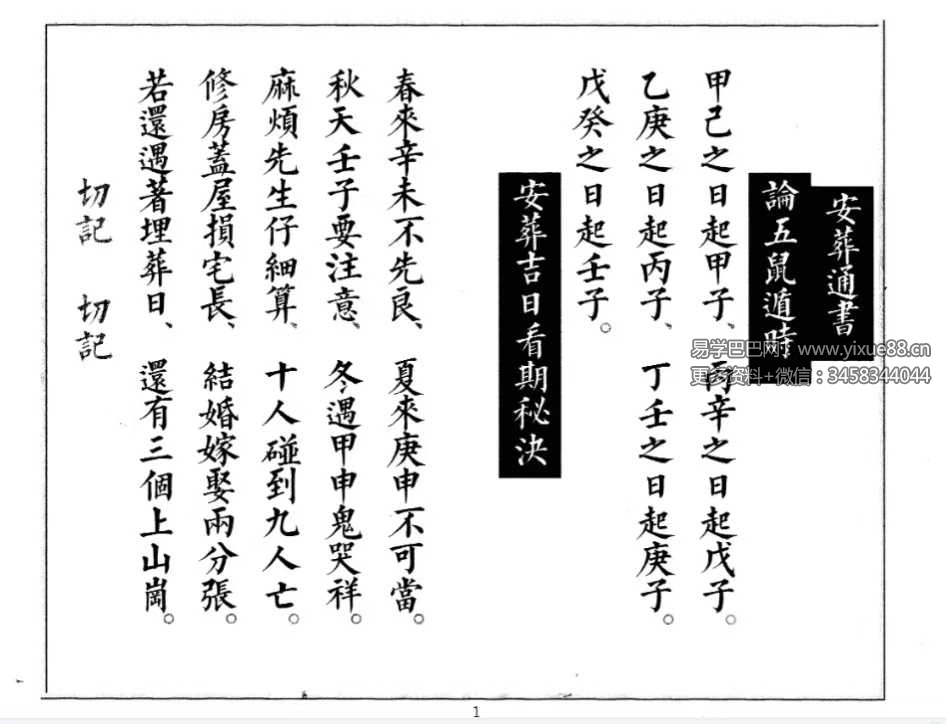 安葬通書
論五鼠遁時
甲己之日起甲子、丙辛之日起戊子。
乙庚之日起丙子、丁壬之日起庚子。
戊癸之日起壬子。
安葬吉日看期秘決
春來辛未不先良、夏來庚申不可當。
秋天壬子要注意、冬遇甲申鬼哭祥。
麻煩先生仔細算、十人碰到九人亡。
修房蓋屋損宅長、結婚嫁娶兩分張。
若還遇著埋葬日、還有三個上山崗。
切記 切記
易学巴巴网：www.yixue88.cn
更多资料+微信：3458344044
1